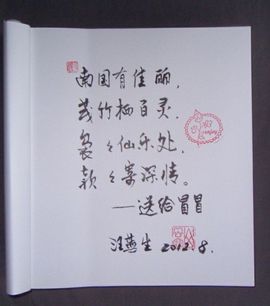 南国有佳丽，
茂竹栖百灵。
袅々仙乐处，
款々寄深情。
——送给冒冒
汪燕生 2012.8.